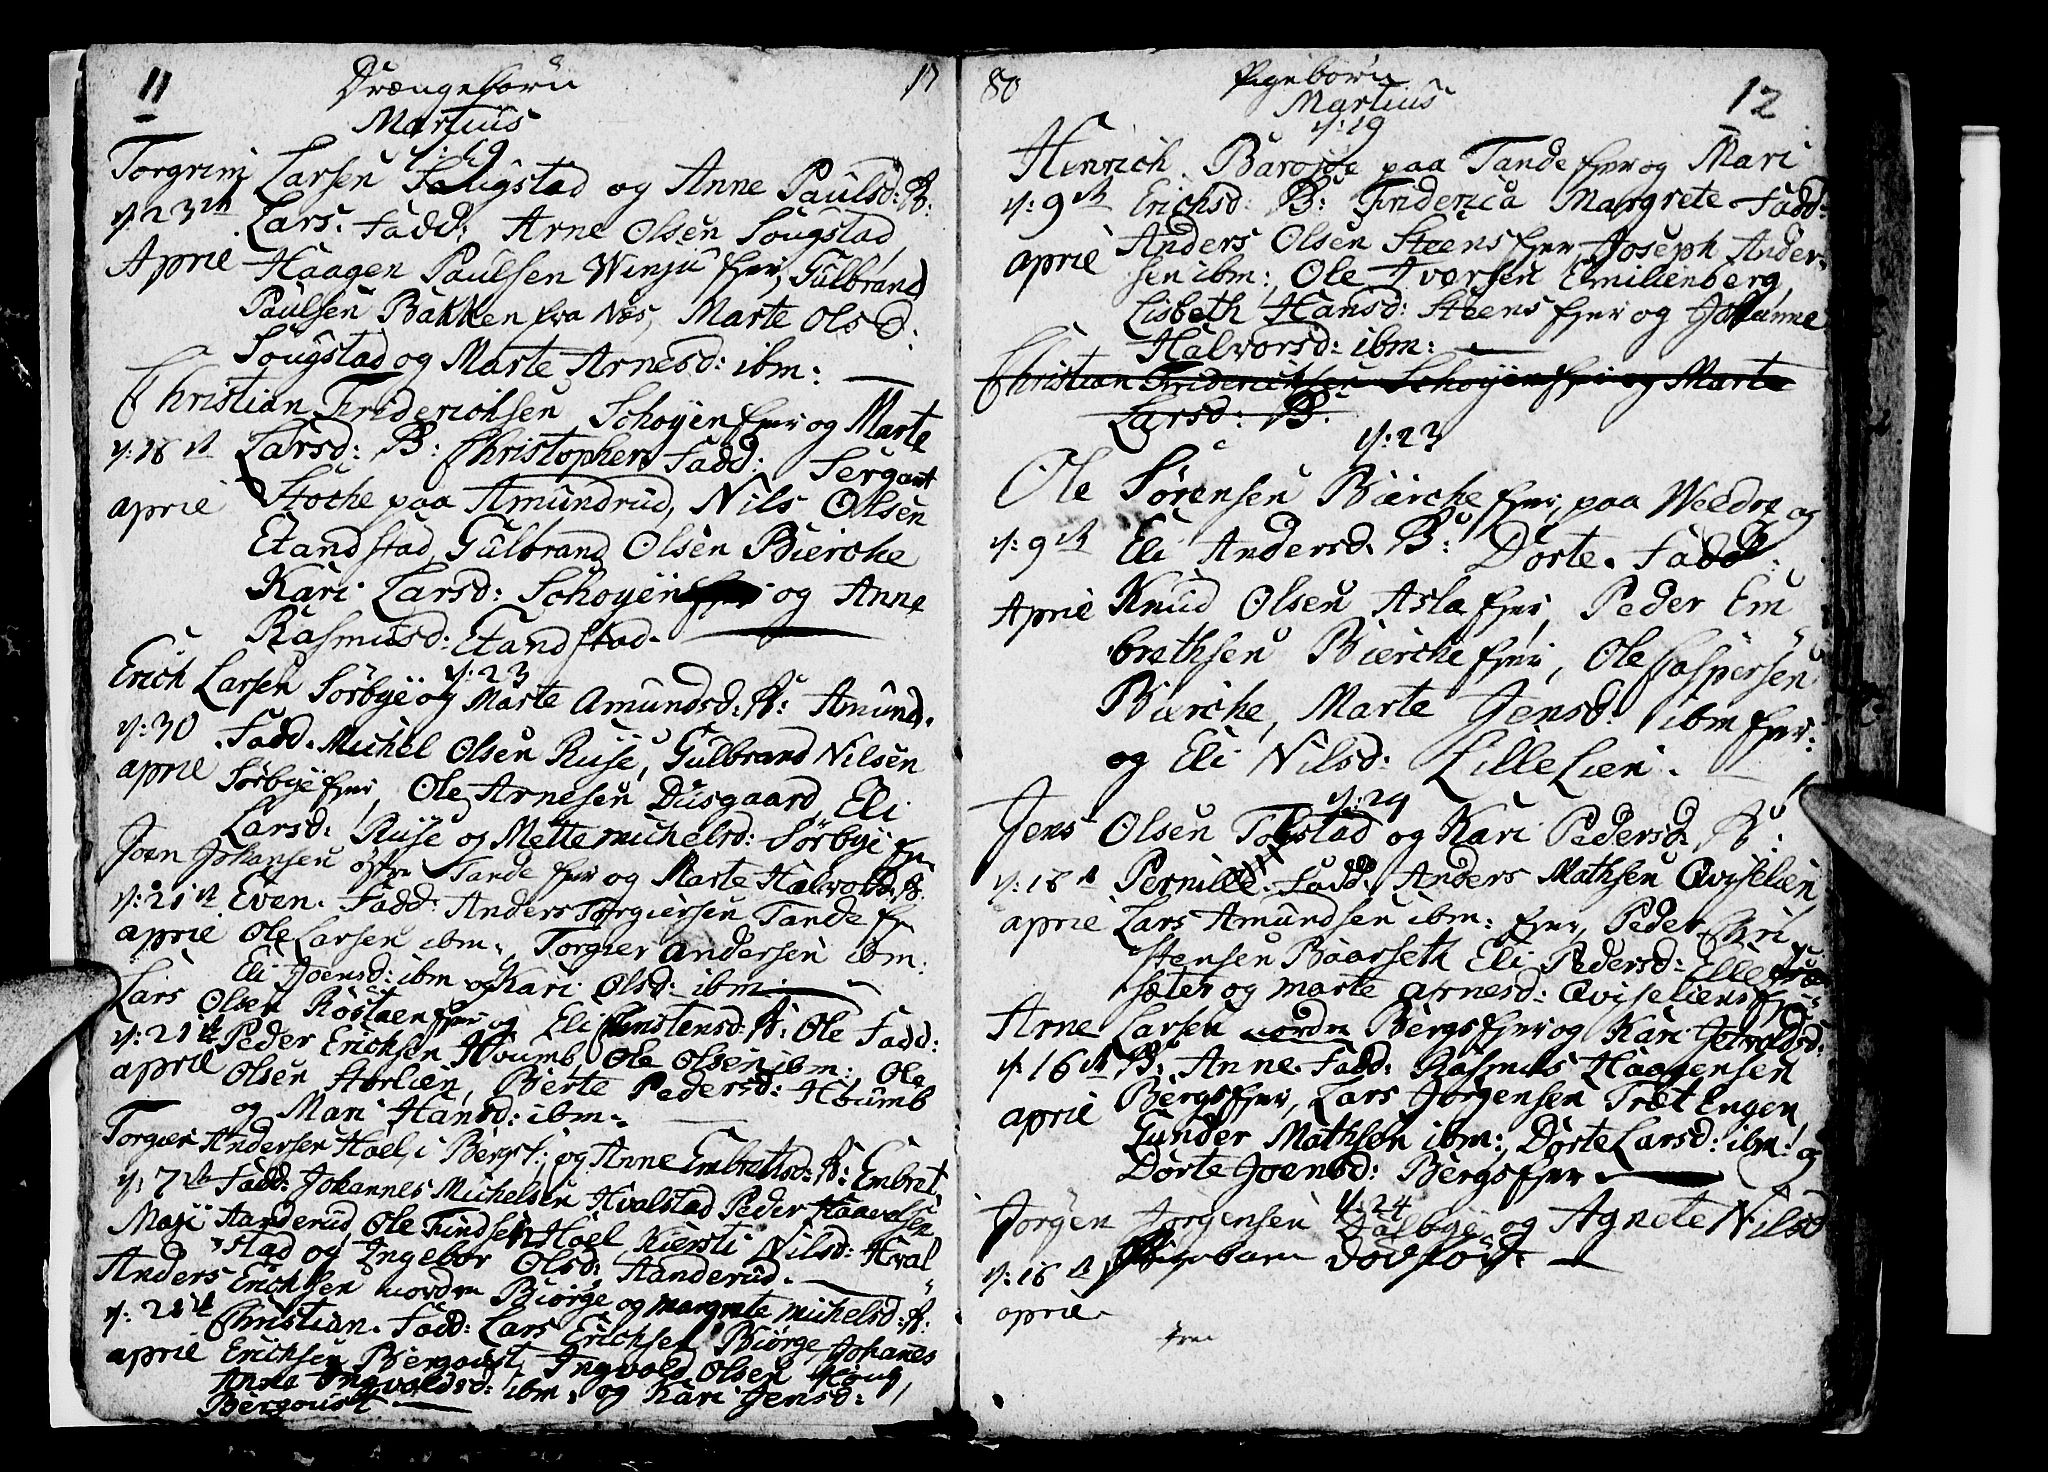 11 Drængebørn 17
Martius
d: 19
Torgrim Larsen Sougstad og Anne Paulsd: B:
d: 23de Lars. Fadd: Arne Olsen Sougstad
April Haagen Paulsen Winju fier, Gulbrand
Paulsen Bakken fra Næs, Marte Ols D:
Sougstad og Marte Arnesd: ibm:
Christian Friderichsen Schøyen fier og Marte
d: 16de Larsd: B: Christopher Fadd: Sergant
april Stoche paa Amundrud, Nils Olsen
Etandstad, Gulbrand Olsen Bierche
Kari Larsd: Schøyen og Anne
Rasmusd: Etandstad.
d: 23
Erich Larsen Sørbye og Marte Amundsd: B: Amund.
d: 30 Fadd. Michel Olsen Ruse, Gulbrand Nilsen
april Sørbye fier, Ole Arnesen Dusgaard, Eli
Larsd: Ruse og Mette Michelsd: Sørbye fier
Joen Johansen østre Tande fier og Marte Halvorsd: B:
d: 21de Even. Fadd: Anders Torgiersen Tande fier
april Ole Larsen ibm:, Torgier Andersen ibm:
Eli Joensd: ibm og Kari Olsd: ibm:
Lars Olsen Rostaen fier og Eli Christensd: B: Ole Fadd:
d: 21de Peder Erichsen Houmb, Ole Olsen ibm: Ole
april Olsen Horlien, Bierte Pedersd: Houmb
og Mari Hansd: ibm.
Torgier Andersen Hoel i Bergs: og Anne Embretsd: B: Embret
d: 7de Fadd: Johannes Michelsen Hvalstad Peder Haavelsen
Maji Handerud, Ole Findsen Hoel Kiersti Nilsd: Hval
stad og Ingebor Olsd: Handerud.
Anders Erichsen nordre Biørge og Margrete Michelsd: B:
d: 21de Christian. Fadd: Lars Erichsen Biørge, Johanes
april Erichsen Bergoust, Ingvold Olsen Houg,
Anne Ingvoldsd: ibm: og Kari Jensd:
Bergoust
80 Pigebørn 12
Martius
d: 19
Hinrich Baroise paa Tande fier og Mari
d: 9de Erichsd: B: Friderica Margrete Fadd:
april Anders Olsen Steens fier, Joseph Ander-
sen ibm:, Ole Iversen Emilienberg
Lisbeth Hansd: Steens fier og Johanne
Halvorsd: ibm:
Christian Friderichsen Schøyen fier og Marte
Larsd: B:
d: 23
Ole Sørensen Bierche fier, paa Weldre og
d: 9de Eli Andersd. B: Dorte. Fadd:
April Knud Olsen Asla fier, Peder Em
brethsen Bierche fier, Ole Caspersen
Bierche, Marte Jensd: ibm fier:
og Eli Nilsd: Lille Lien.
d: 24
Jens Olsen Tokstad og Kari Pedersd: B:
d: 16de Pernille. Fadd: Anders Mathsen Qviselien
april Lars Amundsen ibm: fier, Peder Chri
stensen Baarseth Eli Pedersd: Elle
sæter og Marte Arnesd: Qviseliens fier
Arne Larsen nordre Bergs fier og Kari
d: 16de B: Anne. Fadd: Rasmus Haagensen
april Bergs fier, Lars Jørgensen Træt Engen
Gunder Mathsen ibm:, Dorte Larsd: ibm: og
Dorte Joensd: Bergs fier.
d: 24
Jørgen Jørgensen Dalbye og Agnete Nilsd
d: 16de Pigebarn dødfød.
april.